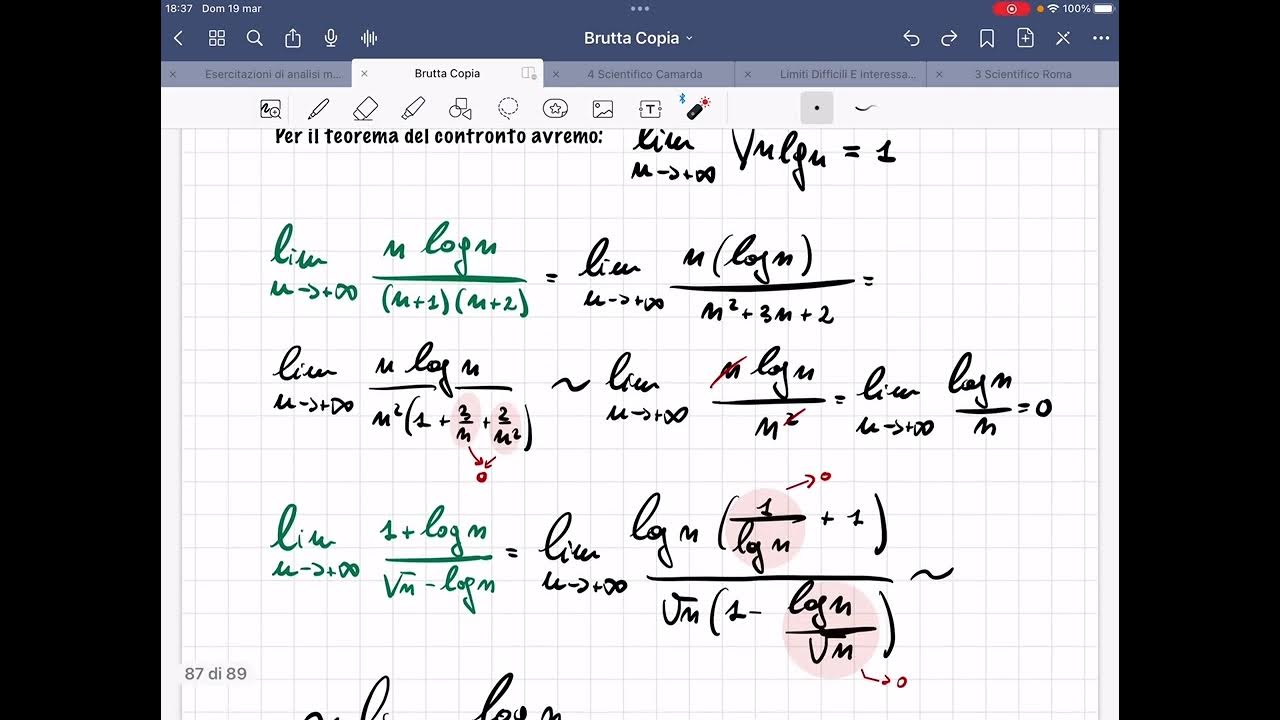 18:37 Dom 19 mar 100%
Brutta Copia
Esercitazioni di analisi m... Brutta Copia 4 Scientifico Camarda Limiti Difficili E interessa... 3 Scientifico Roma
Per il teorema del confronto avremo: lim n→+∞ √n lgn = 1
lim n→+∞ n logn / (n+1)(n+2) = lim n→+∞ n(logn) / n²+3n+2 =
lim n→+∞ n logn / n²(1 + 3/n + 2/n²) ~ lim n→+∞ n logn / n² = lim n→+∞ logn / n = 0
0
→0
lim n→+∞ 1+logn / √n - logn = lim n→+∞ logn (1/logn + 1) / √n (1 - logn/√n) ~
→0
87 di 89
~ lim logn